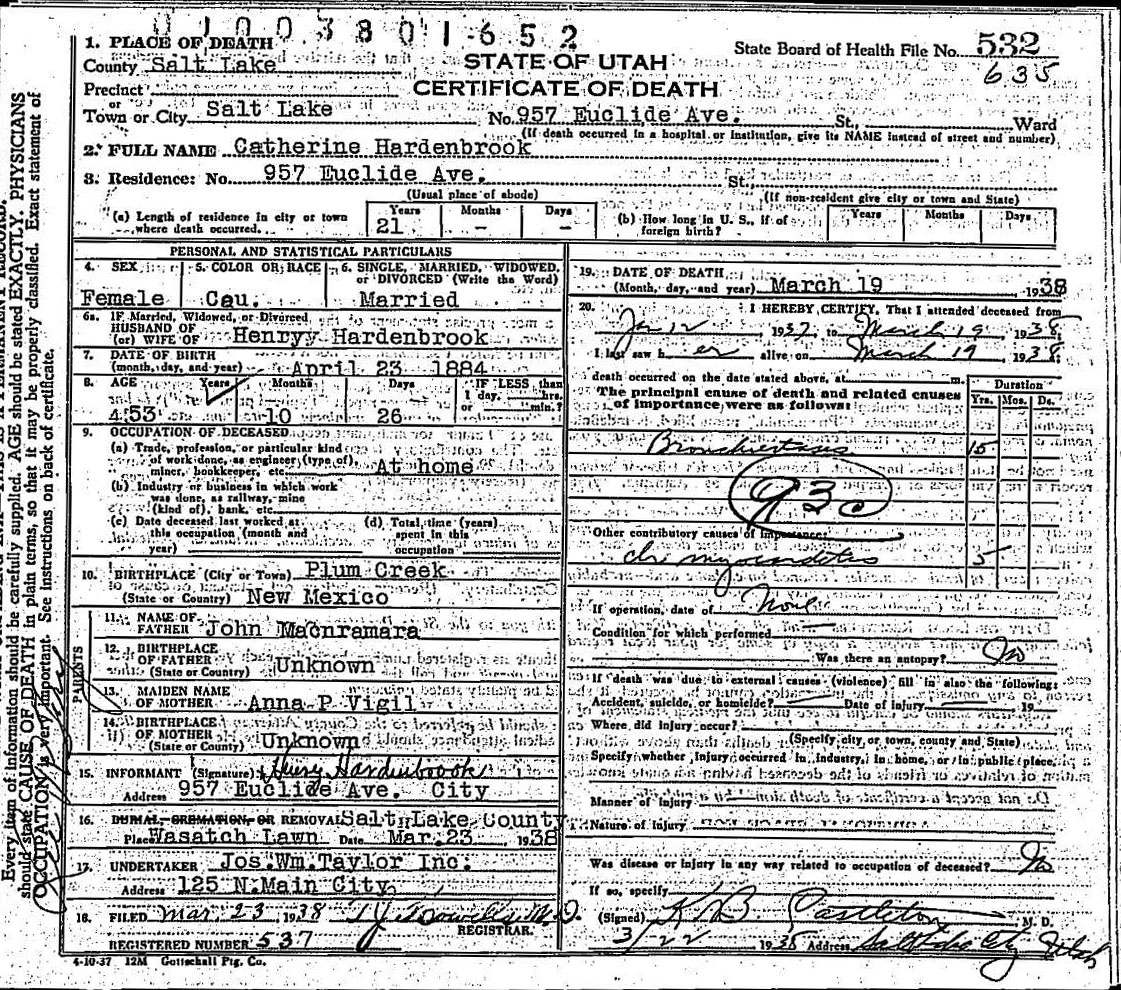 01003801652
1. PLACE OF DEATH
State Board of Health File No. 532
County Salt Lake
STATE OF UTAH
635
Precinct
CERTIFICATE OF DEATH
or
Town or City Salt Lake No. 957 Euclide Ave. St., Ward
(If death occurred in a hospital or institution, give its NAME instead of street and number)
2. FULL NAME Catherine Hardenbrook
3. Residence: No. 957 Euclide Ave. St.,
(Usual place of abode) (If non-resident give city or town and State)
(a) Length of residence in city or town where death occurred. Years 21 Months - Days -
(b) How long in U. S., if of foreign birth? Years Months Days
PERSONAL AND STATISTICAL PARTICULARS
4. SEX 5. COLOR OR RACE 6. SINGLE, MARRIED, WIDOWED, or DIVORCED (Write the Word)
Female Cau. Married
6a. IF Married, Widowed, or Divorced
HUSBAND OF
(or) WIFE OF Henryy Hardenbrook
7. DATE OF BIRTH
(month, day, and year) April 23 1884
8. AGE Years Months Days IF LESS than 1 day, hrs. or min.?
53 10 26
9. OCCUPATION OF DECEASED
(a) Trade, profession, or particular kind of work done, as engineer (type of), miner, bookkeeper, etc. At home
(b) Industry or business in which work was done, as railway, mine (kind of), bank, etc.
(c) Date deceased last worked at this occupation (month and year)
(d) Total time (years) spent in this occupation
10. BIRTHPLACE (City or Town) Plum Creek
(State or Country) New Mexico
PARENTS
11. NAME OF FATHER John Macnramara
12. BIRTHPLACE OF FATHER (State or Country) Unknown
13. MAIDEN NAME OF MOTHER Anna P Vigil
14. BIRTHPLACE OF MOTHER (State or County) Unknown
15. INFORMANT (Signature) Henry Hardenbrook
Address 957 Euclide Ave. City
16. BURIAL, CREMATION, OR REMOVAL Salt Lake County
Place Wasatch Lawn Date Mar. 23 1938
17. UNDERTAKER Jos. Wm. Taylor Inc.
Address 125 N. Main City
18. FILED Mar. 23 1938 M. D.
REGISTRAR.
REGISTERED NUMBER 537
4-10-37 12M Gottschall Ptg. Co.
19. DATE OF DEATH
(Month, day, and year) March 19 1938
20. I HEREBY CERTIFY, That I attended deceased from
Jan 12 1937 to March 19 1938
I last saw h er alive on March 19 1938
death occurred on the date stated above, at m.
The principal cause of death and related causes of importance were as follows:
Duration
Yrs. Mos. Ds.
Bronchiectasis 15
93c
Other contributory causes of importance:
chr myocarditis 5
If operation, date of None
Condition for which performed
Was there an autopsy? No
If death was due to external causes (violence) fill in also the following:
Accident, suicide, or homicide? Date of injury 19
Where did injury occur?
(Specify city, or town, county and State)
Specify whether injury occurred in industry, in home, or in public place,
Manner of injury
Nature of injury
Was disease or injury in any way related to occupation of deceased? No
If so, specify
(Signed) K B Castleton M. D.
3/22 1938 Address Salt Lake City Utah
Every item of information should be carefully supplied. AGE should be stated EXACTLY. PHYSICIANS
should state CAUSE OF DEATH in plain terms, so that it may be properly classified. Exact statement of
OCCUPATION is very important. See instructions on back of certificate.